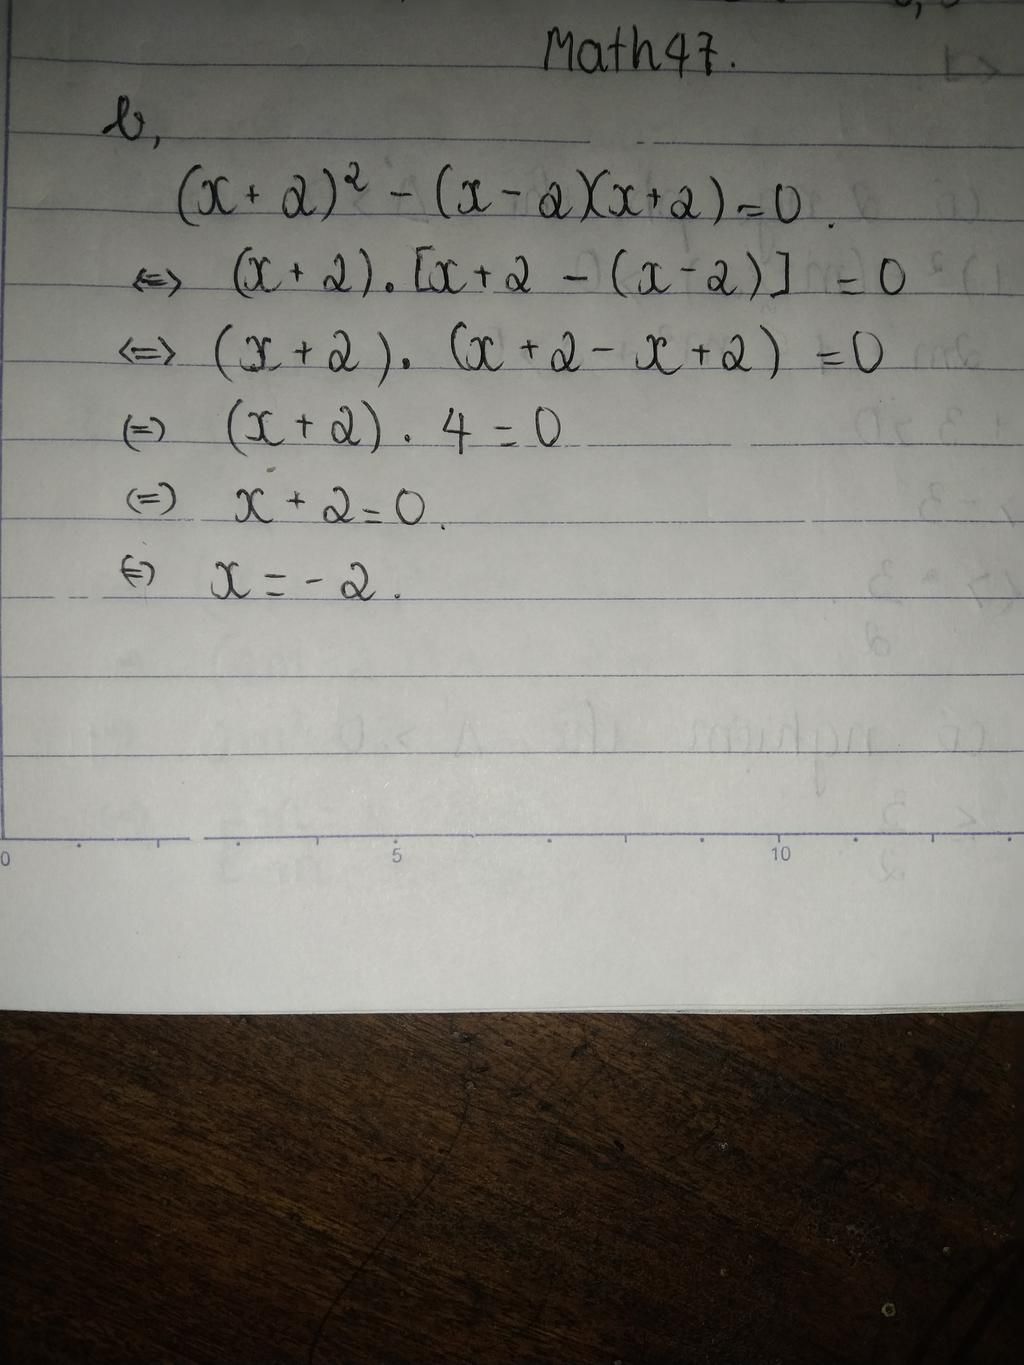 Math47.
b,
(x + 2)² - (x - 2)(x+2) = 0.
<=> (x + 2). [x + 2 - (x - 2)] = 0
<=> (x + 2). (x + 2 - x + 2) = 0
(=) (x + 2) . 4 = 0
(=) x + 2 = 0.
<=> x = - 2.
0 5 10